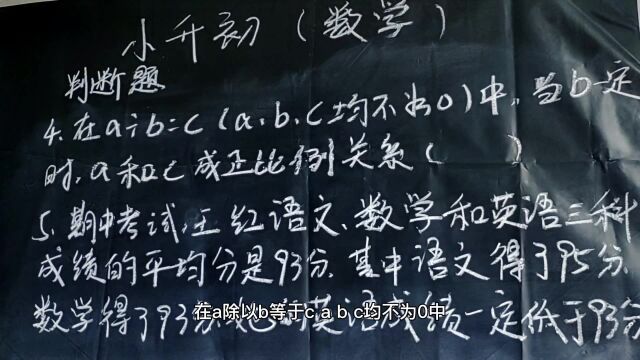 小升初(数学)
判断题
4.在a÷b=c(a、b、c均不为0)中,当b一定
时,a和c成正比例关系(  )
5.期中考试,王红语文、数学和英语三科
成绩的平均分是93分.其中语文得了95分.
数学得了93分.英语成绩一定低于93分
在a除以b等于c a b c均不为0中